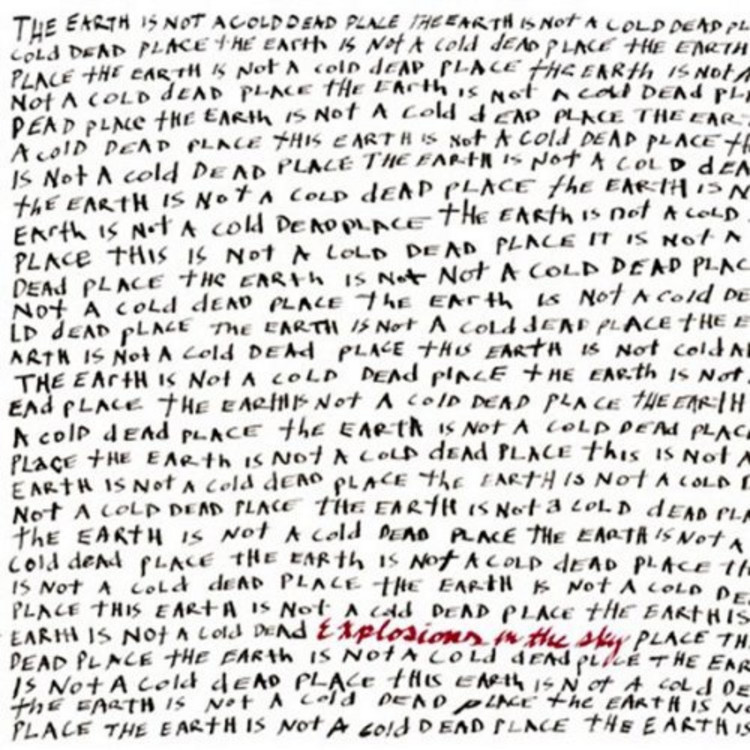 THE EARTH IS NOT A COLD DEAD PLACE THE EARTH IS NOT A COLD DEAD PL
COLD DEAD PLACE tHE EARth IS NOt A Cold dEAD PLACE tHE EARTH
PLACE tHE EARTH IS NOt A cold dEAD PLACE tHE EARth IS NOT A
NOt A COLD dEAD PLACE tHE EARth is Not A Cold DEAd PL
DEAD pLACE tHE EARth IS NOt A Cold dEAD PLACE THE EAR
A colD DEAD PLACE tHIS EARTH IS Not A Cold DEAD PLACE tH
IS Not A cold DEAD PLACE THE EARTH IS NOt A COLD dEA
tHE EARTH IS NOT A COLD dEAD PLACE the EARTH IS N
EARth IS NOt A cold DEAD PLACE tHE EARth IS not A COLD
PLACE THIS IS NOT A COLD DEAD PLACE IT IS NOT A
DEAd PLACE tHE EARth IS Not NOt A COLD DEAD PLAC
NOt A COLd dEAD PLACE the EARth is Not A cold DE
LD dEAD pLACE THE EARTH IS Not A cold dEAD PLACE tHE E
ARTH IS NOt A Cold DEAd PLACE tHIS EARTH IS NOt cold A
THE EARTH IS NOt A COLD DEAd PlACE tHE EARth IS NOT
EAd PLACE tHE EARTH IS NOt A COlD DEAD PLACE THE EARtH
A colD dEAD pLACE the EARTH IS NOT A COLD DEAd PLAC
PLACE tHE EARth IS NOt A COLD dEAd PLACE this IS Not A
EARTH IS NOt A cold dEAD pLACE the EARTH IS NOt A COLD
NOt A COLD DEAD PLACE tHE EARTH IS NOt a COLD dEAD PLA
the EARTH IS NOt A Cold DEAD PLACE THE EARTH IS NOT A
COld dead PLACE tHE EARth IS NOT A COLD dEAD PLACE
IS NOT A COLd dEAD PLACE tHE EARTH IS NOT A COLD DE
PLACE THIS EARtH IS NOt A COld DEAD PLACE tHE EARTH IS
EARTH IS NOt A Cold DEAD Explosions in the sky PLACE TH
DEAD PLACE tHE EARth IS NOt A COLD dEAd pLACE tHE EAR
IS NOt A Cold dEAD PLACE tHIS EARth IS NOt A COLd DE
the EARTH IS NOt A COLd DEAD pLACE the EARTH IS NO
PLACE THE EARTH IS NOt A cold DEAD PLACE tHE EARTH IS